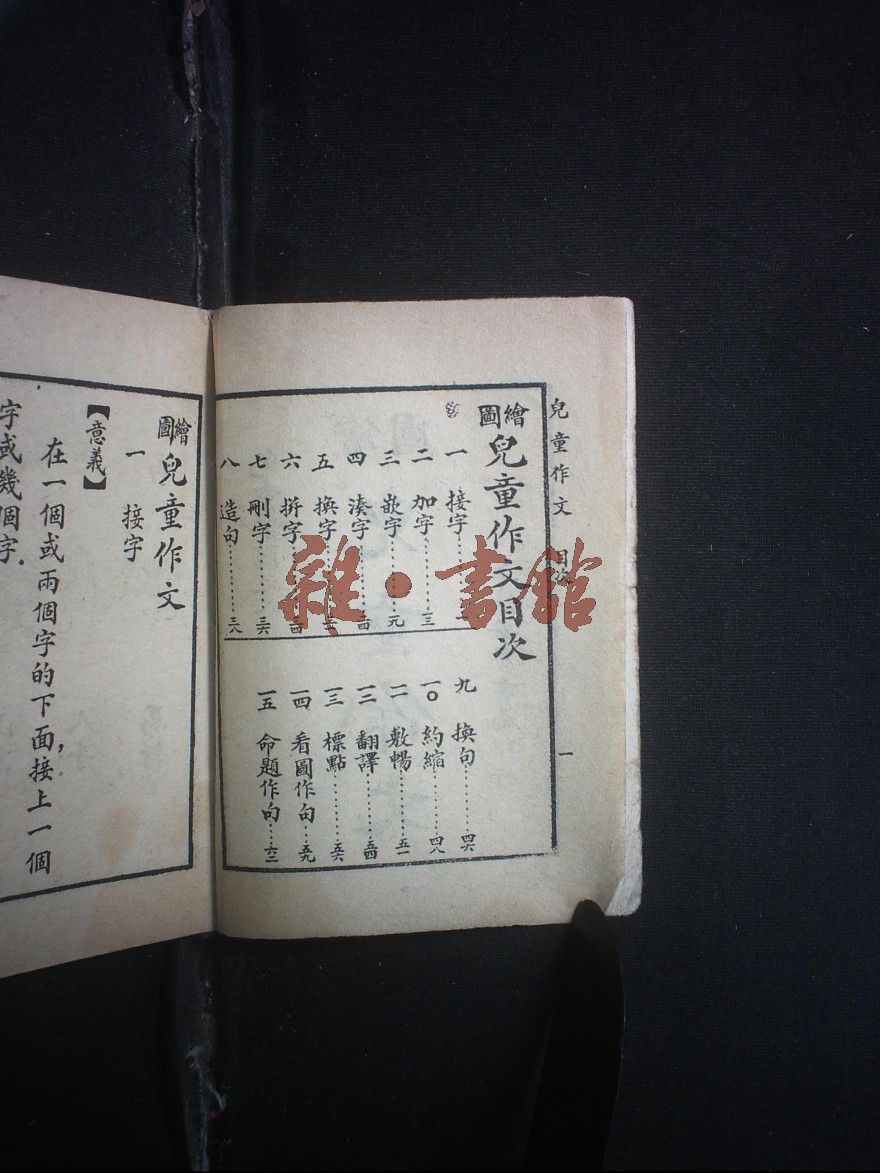 兒童作文 目次 一
繪圖兒童作文目次
一 接字
二 加字………三
三 嵌字………元
四 湊字………三四
五 換字………三
六 拼字………三四
七 刪字………三六
八 造句………三八
九 換句………四六
一〇 約縮………四八
一一 敷暢………五一
一二 翻譯………五四
一三 標點………五六
一四 看圖作句……五九
一五 命題作句……六二
繪圖兒童作文
一 接字
【意義】
在一個或兩個字的下面，接上一個
字或幾個字．
雜·書館